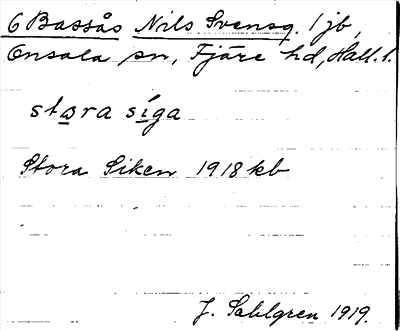 6 Bassås Nils Svensg. 1 jb,
Onsala sn, Fjäre hd, Hall. l.
stora síga
Stora Siken 1918 kb
J. Sahlgren 1919.